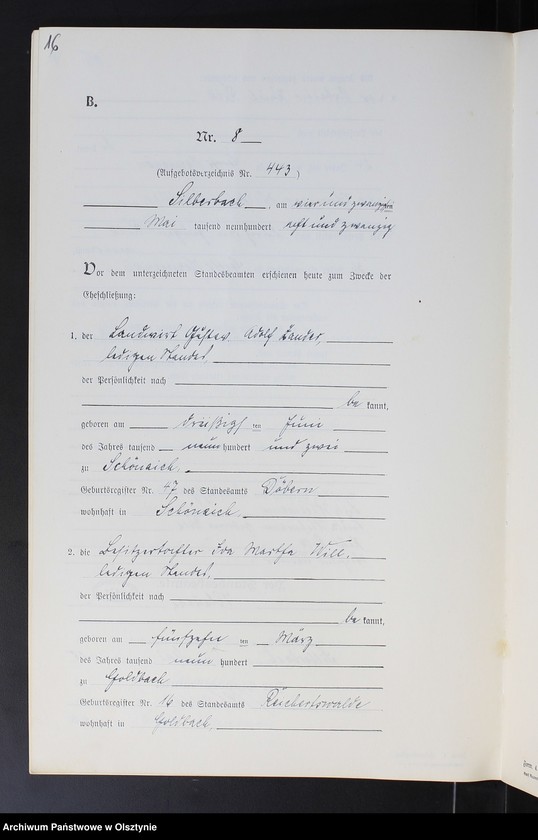 16
B.
Nr. 8
(Aufgebotsverzeichnis Nr. 443)
Silberbach, am vierundzwanzigsten
Mai tausend neunhundert achtundzwanzig
Vor dem unterzeichneten Standesbeamten erschienen heute zum Zwecke der
Eheschließung:
1. der Landwirt Gustav Adolf Zander,
ledigen Standes,
der Persönlichkeit nach
be kannt,
geboren am dreißigsten Juni
des Jahres tausend neunhundert und zwei
zu Schönaich,
Geburtsregister Nr. 47 des Standesamts Döbern
wohnhaft in Schönaich
2. die Besitzertochter Ida Martha Will,
ledigen Standes,
der Persönlichkeit nach
be kannt,
geboren am fünfzehn ten März
des Jahres tausend neun hundert
zu Goldbach
Geburtsregister Nr. 16 des Standesamts Reichertswalde
wohnhaft in Goldbach,
Archiwum Państwowe w Olsztynie